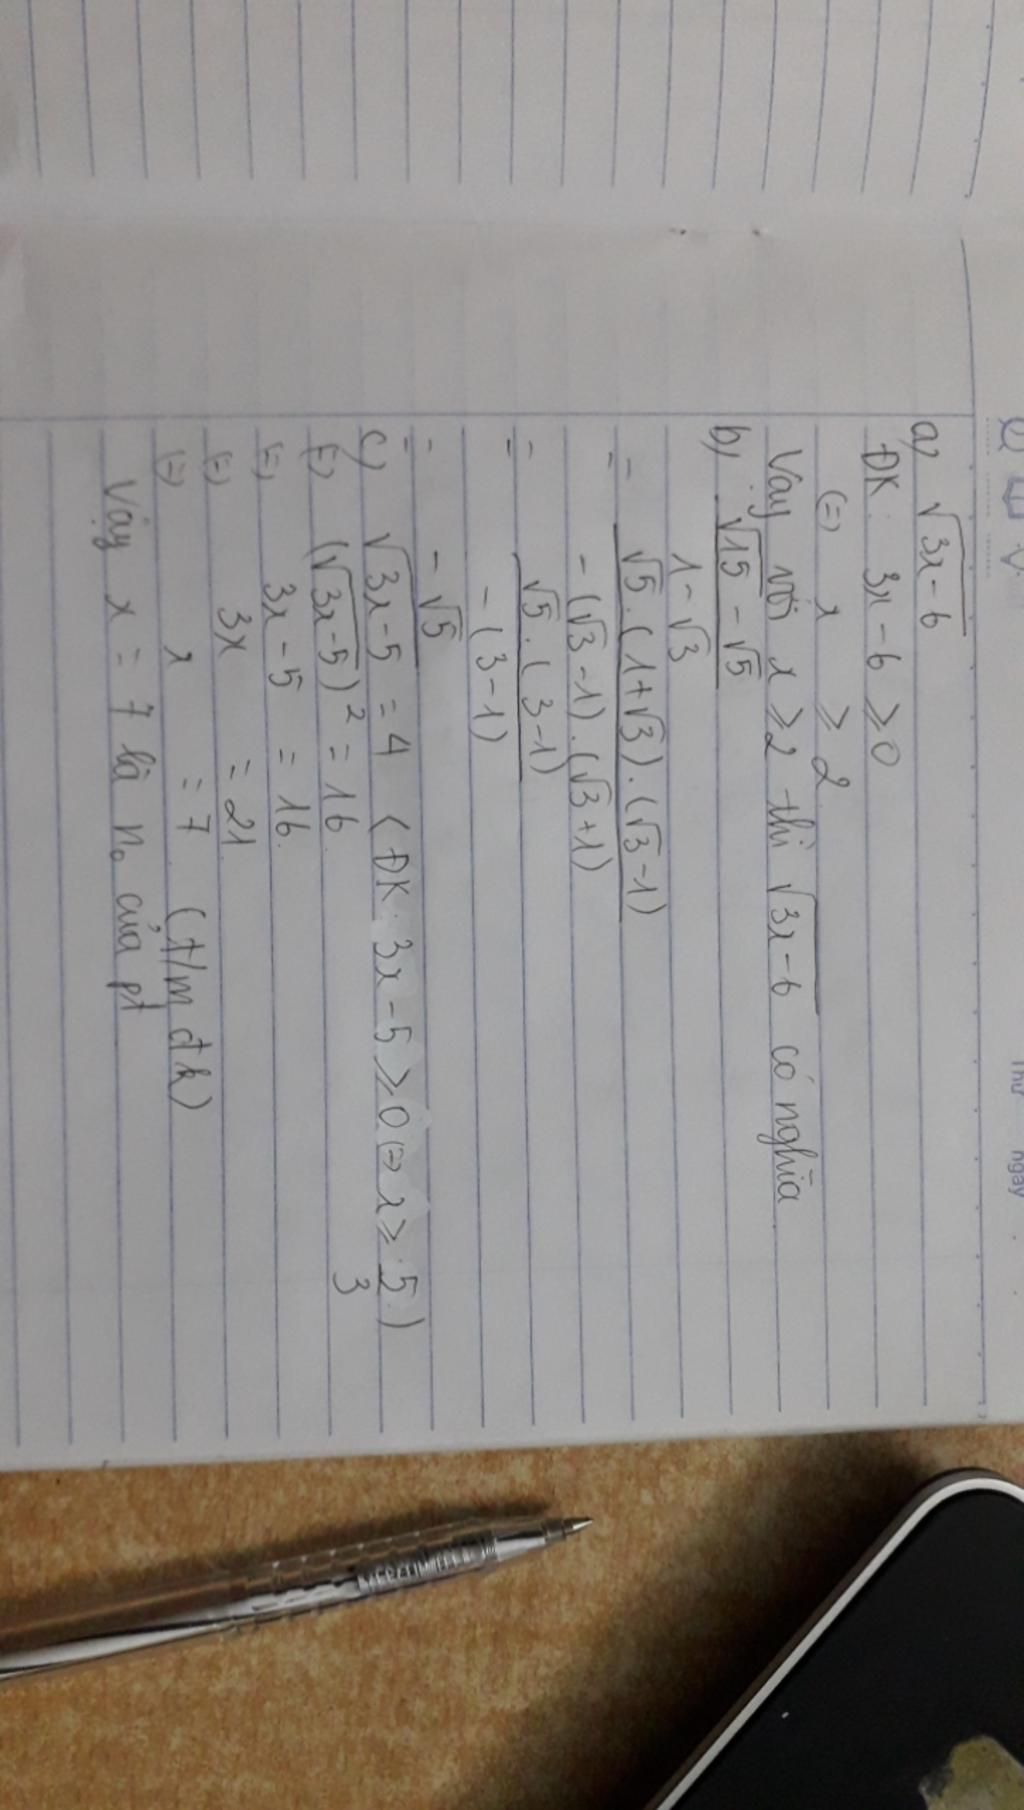 Thứ ngày
a) √(3x-6)
ĐK: 3x-6 ≥ 0
(=) x ≥ 2
Vậy với x ≥ 2 thì √(3x-6) có nghĩa
b) (√15 - √5)/(1-√3)
= (√5.(1+√3).(√3-1))/(-(√3-1).(√3+1))
= (√5.(3-1))/(-(3-1))
= -√5
c) √(3x-5) = 4 (ĐK: 3x-5 ≥ 0 (=) x ≥ 5/3)
(=) (√(3x-5))² = 16
(=) 3x-5 = 16
(=) 3x = 21
(=) x = 7 (t/m đk)
Vậy x = 7 là n₀ của pt